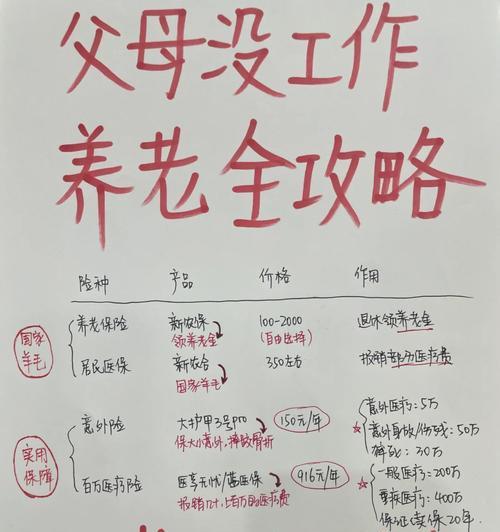 父母没工作
养老全攻略
险种 产品 价格 作用
国家
羊毛
养老保险 新农保 100-2000 退休领养老金
领养老金 (自由选择)
居民医保 新农合 350左右 报销部分医疗费
国家羊毛
实用
保障
意外险 大护甲3号pro 150元/年
保大小意外,摔跤骨折
意外医疗:5万
意外身故/伤残:50万
猝死:30万
百万医疗险 医享无忧/ 916元/年
报销几十,上百万的医疗费
一般医疗:200万
重疾医疗:400万
保证续保20年